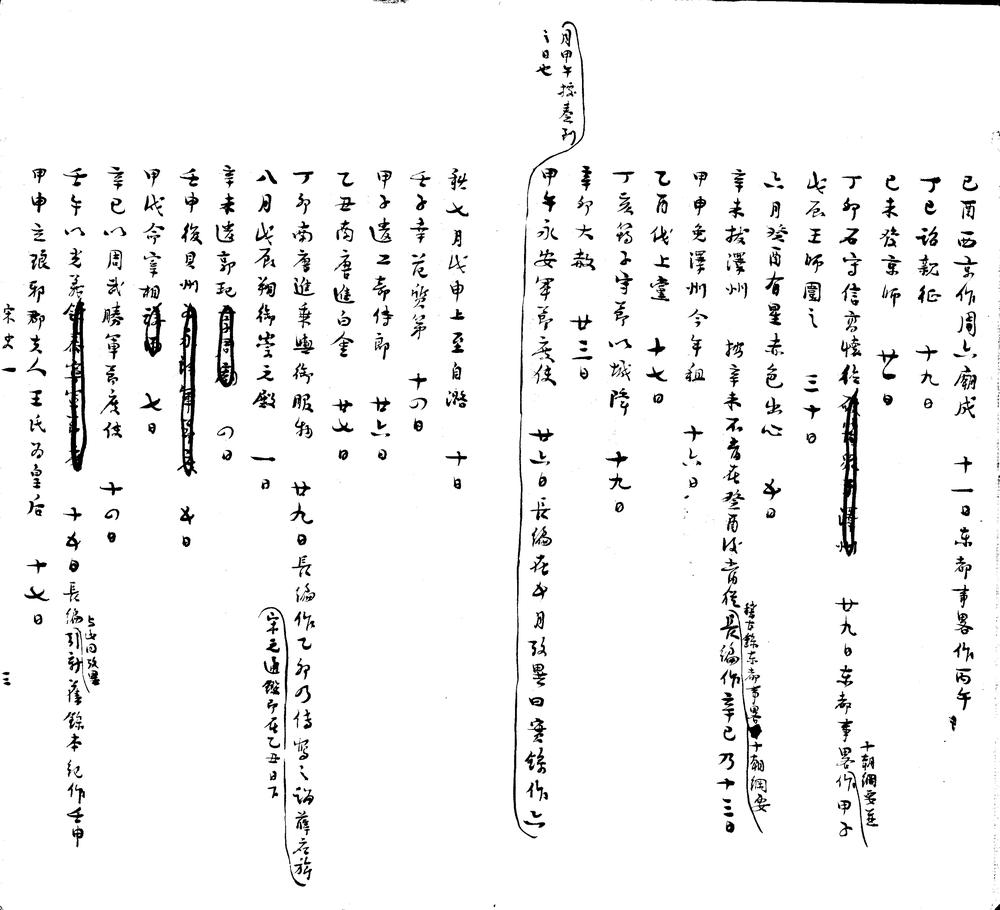 己酉西京作周六廟成　十一日東都事畧作丙午
丁巳詔親征　十九日
己未發京師　廿一日
丁卯石守信高懷德　廿九日東都事畧作甲子
十朝綱要並
戊辰王師圍之　三十日
六月癸酉有星赤色出心　五日
辛未拔澤州　按辛未不當在癸酉後當從長編作辛巳乃十三日
稽古錄東都事畧十朝綱要
甲申免澤州今年租　十六日
乙酉伐上黨　十七日
丁亥筠子守節以城降　十九日
辛卯大赦　廿三日
甲午永安軍節度使　廿六日長編在五月攷異曰實錄作六
月甲午據表到
之日也
秋七月戊申上至自潞　十日
壬子幸范質第　十四日
甲子遣工部侍郎　廿六日
乙丑南唐進白金　廿七日
丁卯南唐進乘輿御服物　廿九日長編作乙卯乃傳寫之訛薛應旂
宋元通鑑即在乙丑日下
八月戊辰朔御崇元殿　一日
辛未遣郭玘　四日
壬申復貝州　五日
甲戌命宰相　七日
辛巳以周武勝軍節度使　十四日
壬午以光義　十五日長編引新舊錄本紀作壬申
上山日攷異
甲申立琅邪郡夫人王氏為皇后　十七日
宋史一
三